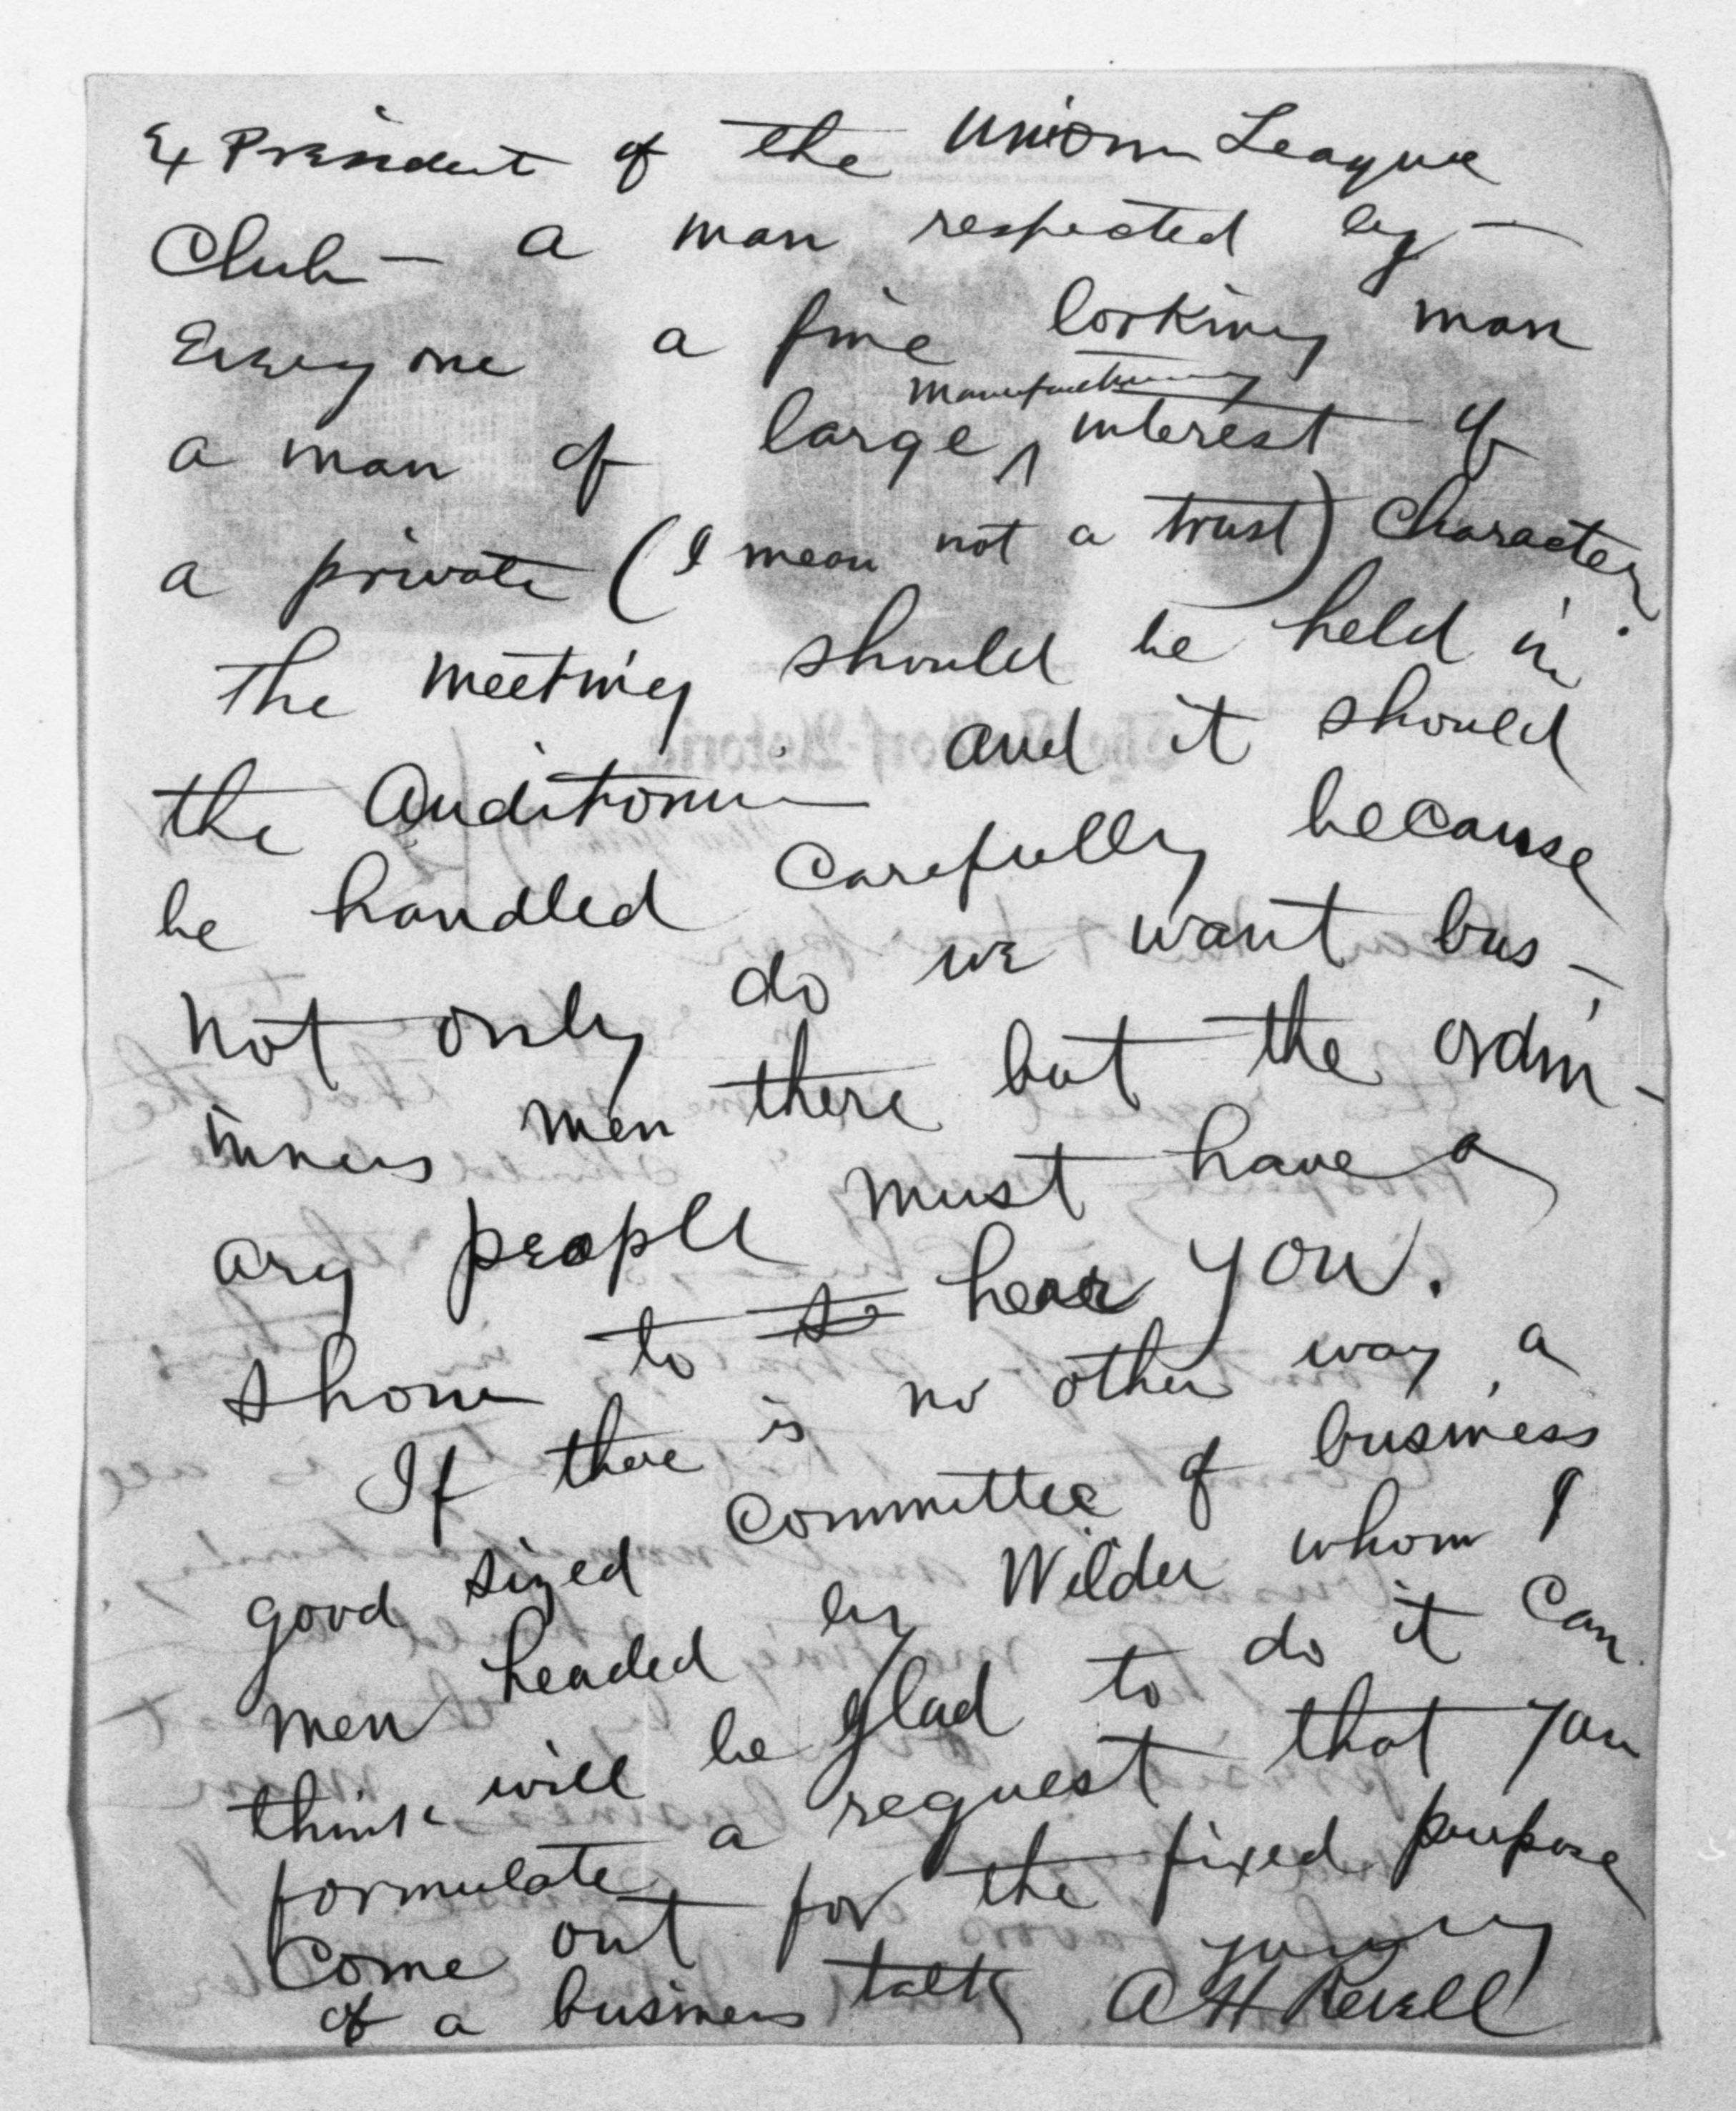 Ex President of the Union League
Club — a man respected by —
Everyone a fine looking man
manufacturing
a man of large ^ interest of
a private (I mean not a trust) character.
The meeting should be held in
the Auditorium and it should
be handled carefully because
not only do we want bus-
iness men there but the ordin-
ary people must have a
show to to hear you.
If there is no other way, a
good sized committee of business
men headed by Wilder whom I
think will be glad to do it can
formulate a request that you
come out for the fixed purpose
of a business talk
yours
A H Revell